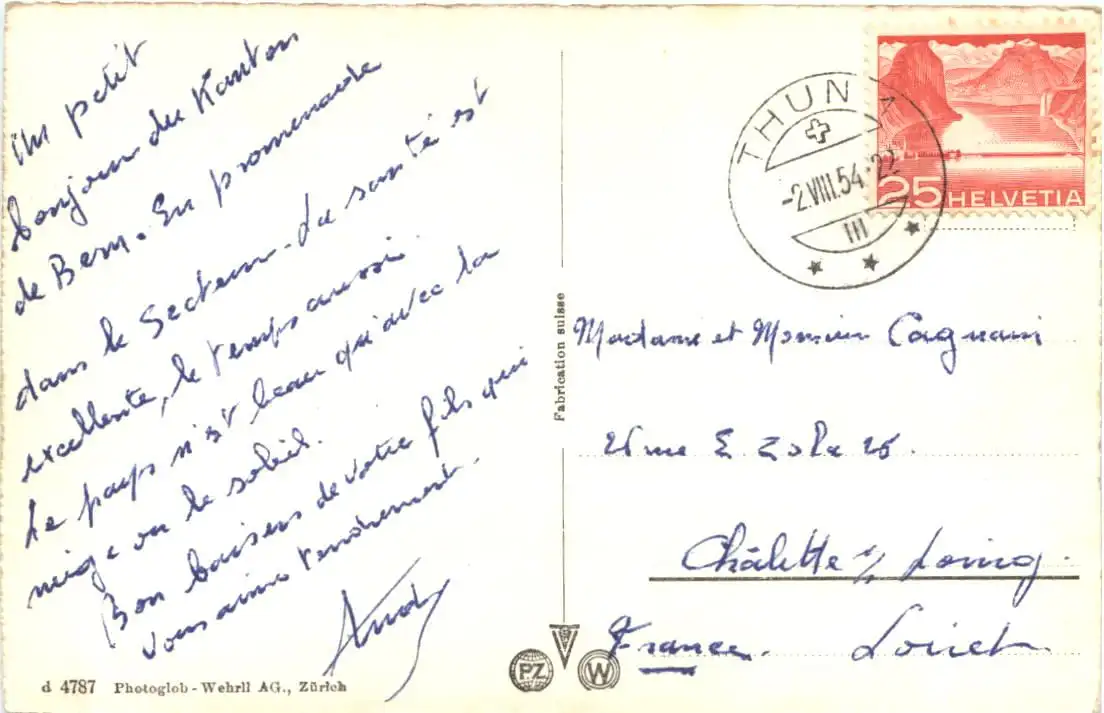 Un petit
bonjour du Kanton
de Bern. En promenade
dans le Secteur. La santé est
excellente, le temps aussi.
Le pays n'est beau qu'avec la
neige ou le soleil.
Bon baisers de votre fils qui
vous aime tendrement.
Andy
d 4787 Photoglob - Wehrli AG., Zürich
Fabrication suisse
PZ
W
THUN
-2.VIII.54.-22
III
25 HELVETIA
Madame et Monsieur Cagnani
E Zola 26.
Châlette s/ Loing.
France. Loiret